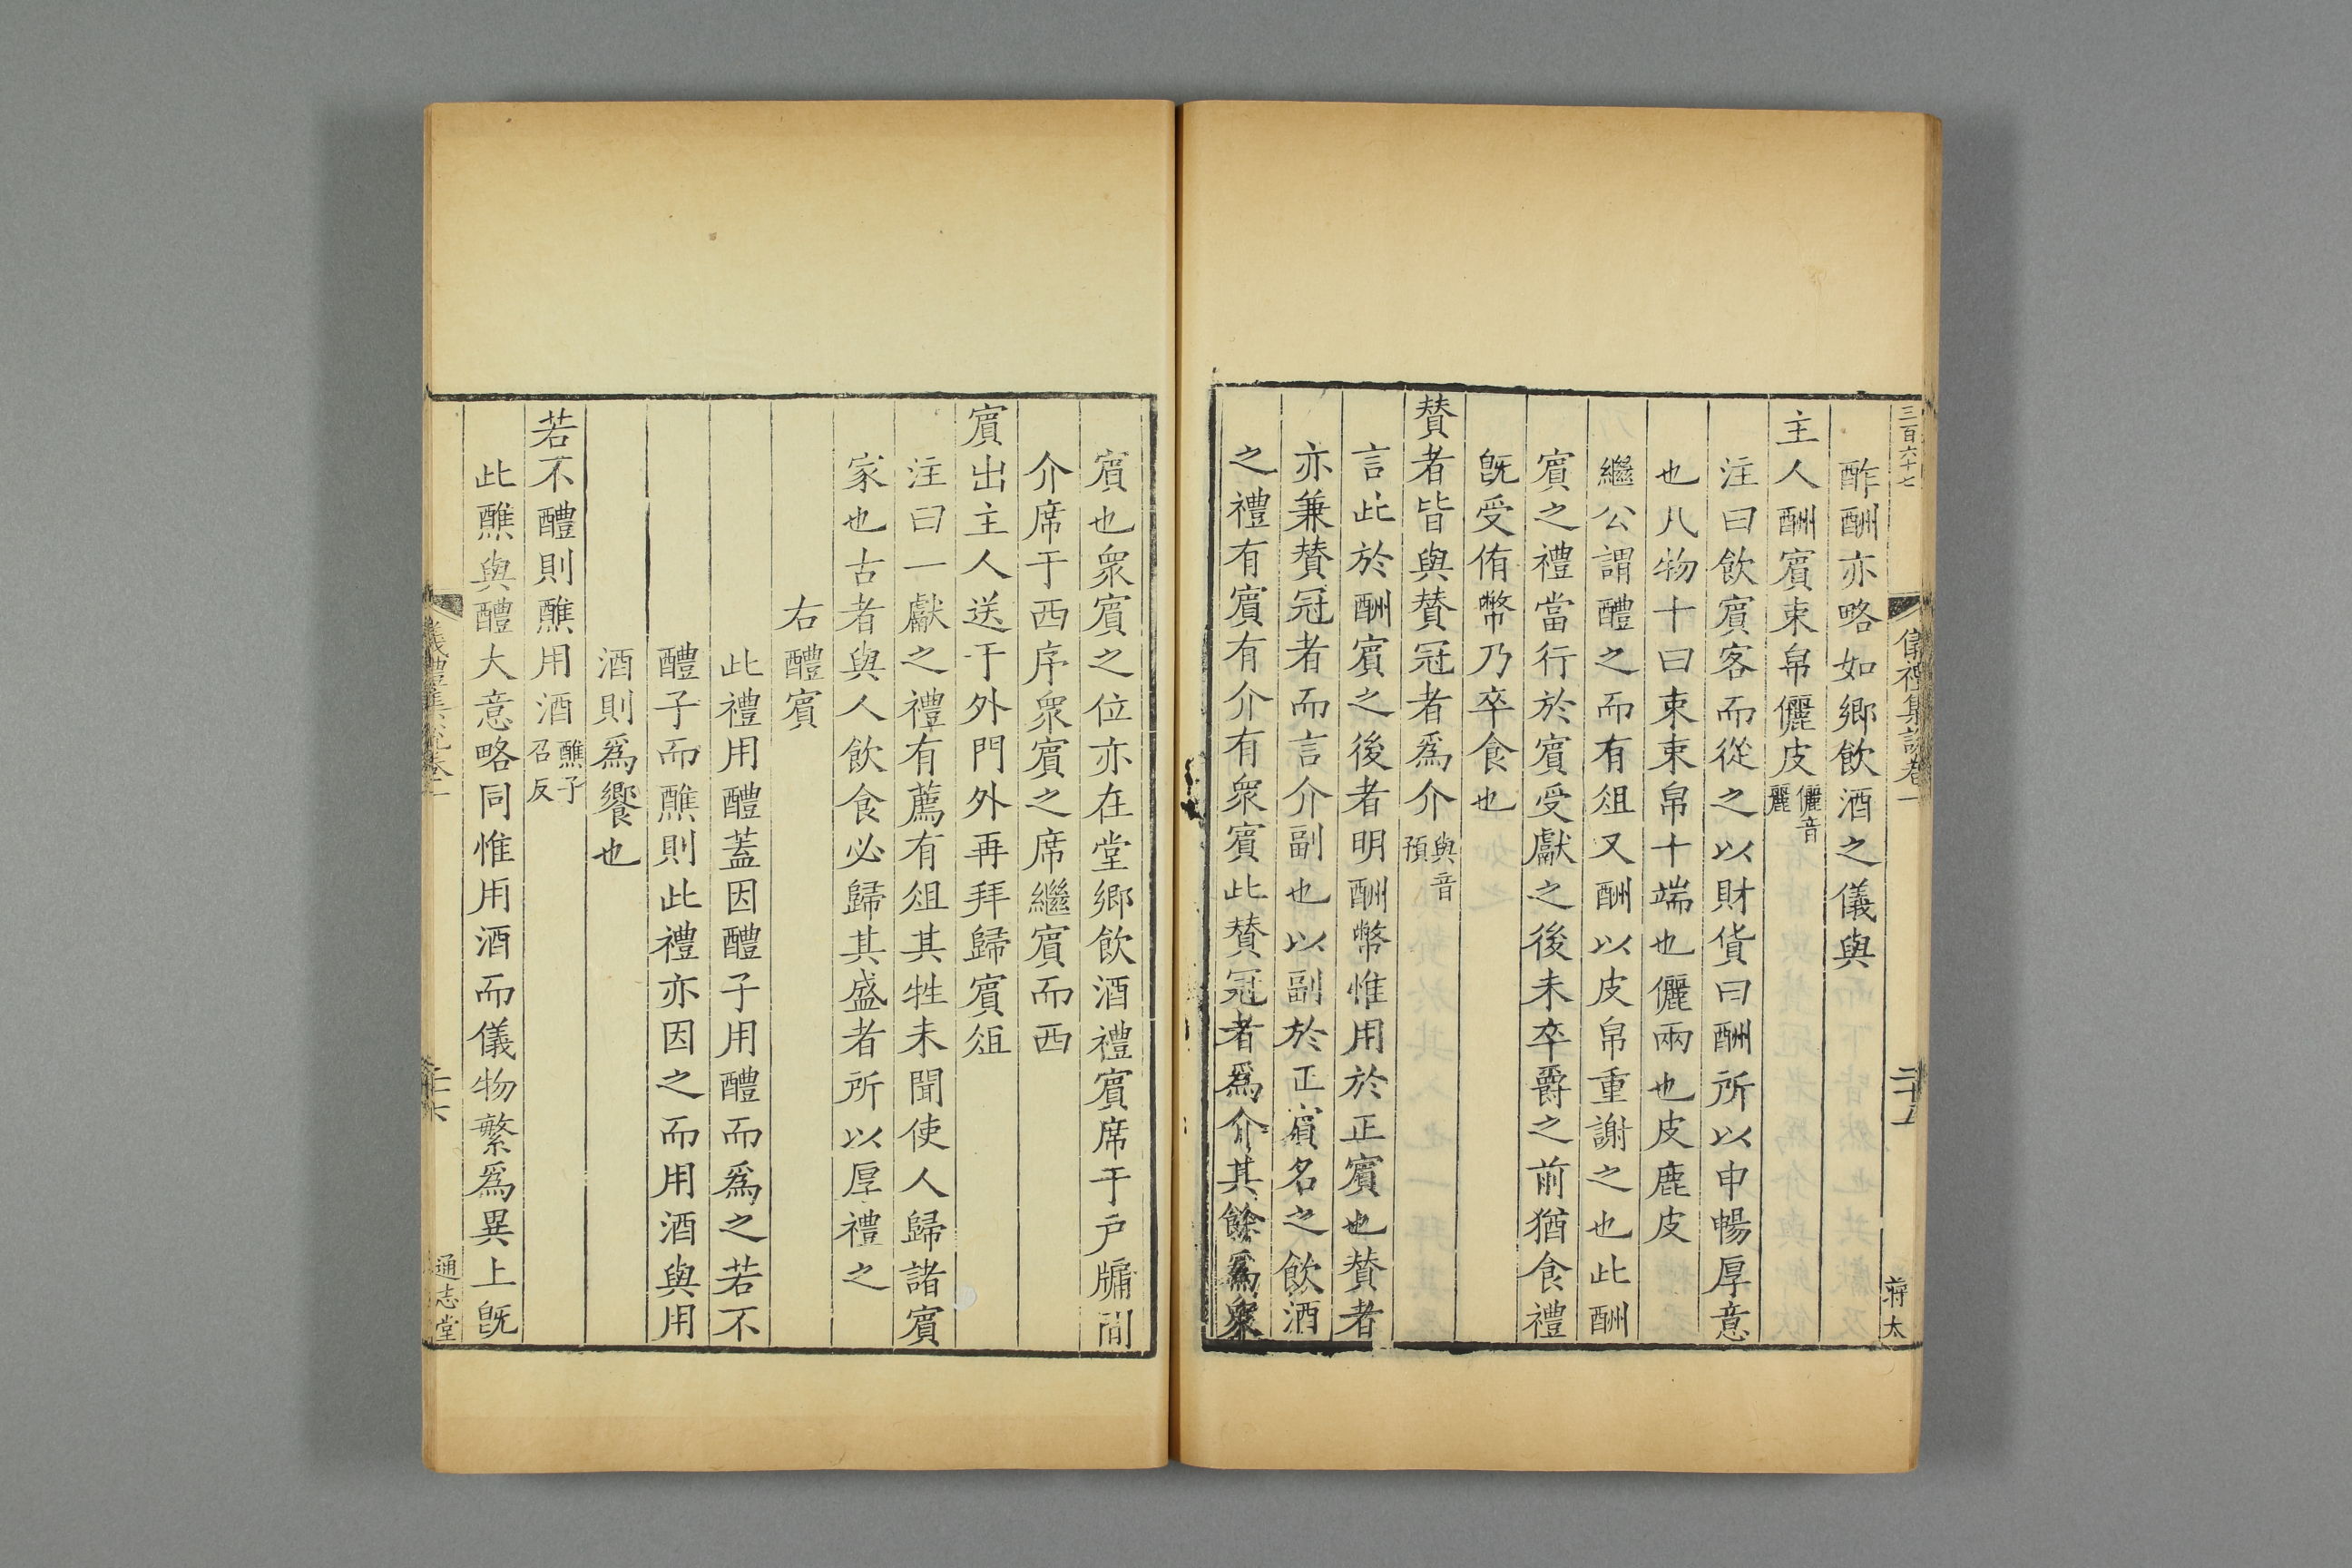 三百六十七
儀禮集說卷一
二十五
蔣太
酢酬亦略如鄉飲酒之儀與
主人酬賓束帛儷皮儷音麗
注曰飲賓客而從之以財貨曰酬所以申暢厚意
也凡物十曰束束帛十端也儷兩也皮鹿皮
繼公謂醴之而有俎又酬以皮帛重謝之也此酬
賓之禮當行於賓受獻之後未卒爵之前猶食禮
旣受侑幣乃卒食也
賛者皆與賛冠者爲介與音預
言此於酬賓之後者明酬幣惟用於正賓也賛者
亦兼賛冠者而言介副也以副於正賓名之飲酒
之禮有賓有介有衆賓此賛冠者爲介其餘爲衆
賓也衆賓之位亦在堂鄉飲酒禮賓席于戶牖間
介席于西序衆賓之席繼賓而西
賓出主人送于外門外再拜歸賓俎
注曰一獻之禮有薦有俎其牲未聞使人歸諸賓
家也古者與人飲食必歸其盛者所以厚禮之
右醴賓
此禮用醴蓋因醴子用醴而爲之若不
醴子而醮則此禮亦因之而用酒與用
酒則爲饗也
若不醴則醮用酒醮子召反
此醮與醴大意略同惟用酒而儀物繁爲異上旣
通志堂